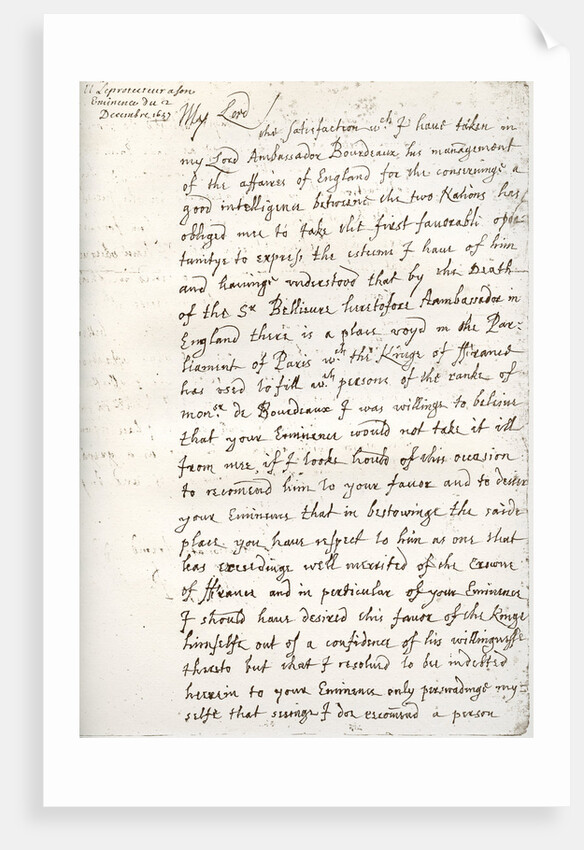 Le protecteur a son
Eminence du 12
Decembre 1657
My Lord
the satisfaction wch I have taken in
my Lord Ambassador Bourdeaux his management
of the affaires of England for the conservinge a
good intelligence betweene the two Nations has
obliged mee to take the first favorable oppor
tunitye to express the esteeme I have of him
and havinge understood that by the Death
of the Sr Bellieure heretofore Aambassador in
England there is a place voyd in the Par:
liament of Paris wch the Kinge of ffrance
has used to fill wth persons of the ranke of
monsr de Bourdeaux I was willinge to believe
that your Eminence would not take it ill
from mee if I tooke hould of this occasion
to recomend him to your favor and to desier
your Eminence that in bestowinge the saide
place you have respect to him as one that
has exceedinge well merrited of the Crowne
of ffrance and in perticular of your Eminence
I should have desired this favor of the Kinge
himselfe out of a confidence of his willingnesse
thereto but that I resolved to be indebted
herein to your Eminence only perswadinge my=
selfe that seeinge I doe recomend a person